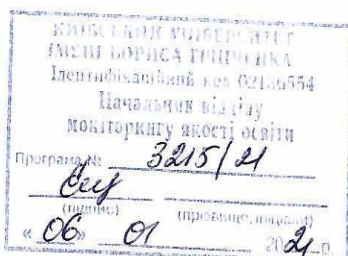 КИЇВСЬКИЙ УНІВЕРСИТЕТ
ІМЕНІ БОРИСА ГРІНЧЕНКА
Ідентифікаційний код 02136554
Начальник відділу
моніторингу якості освіти
Програма № 3215/21
(підпис) (прізвище, ініціали)
« 06 » 01 2021 р.